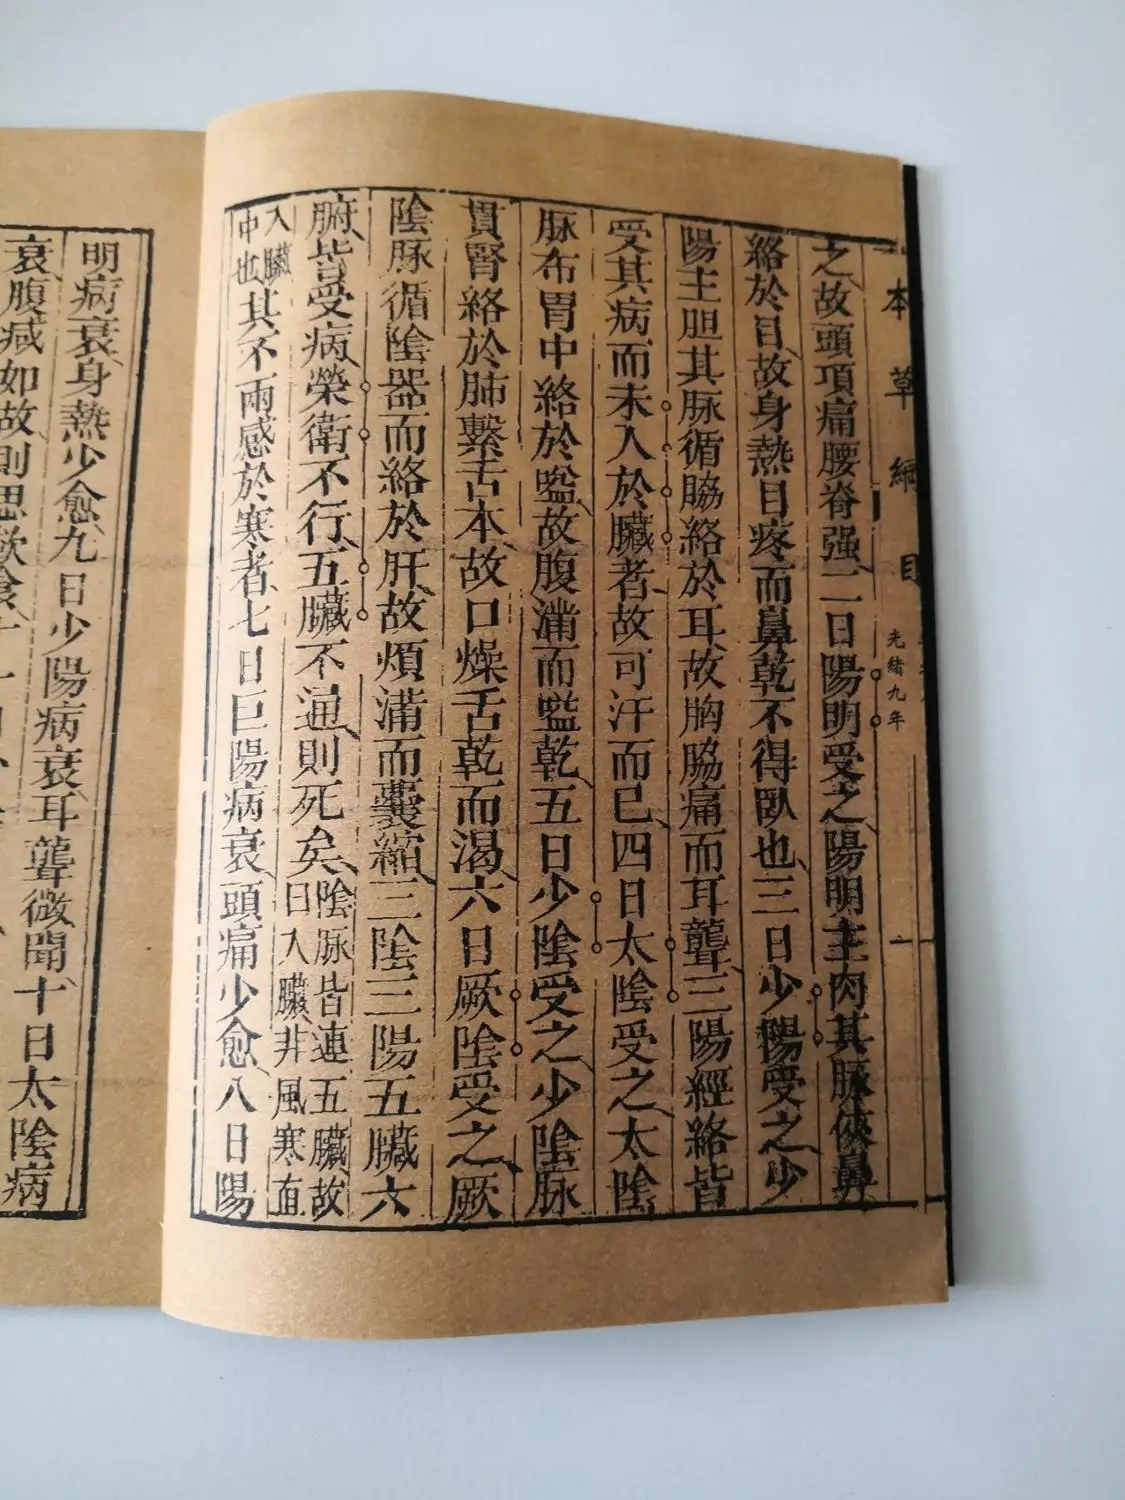 本草綱目
光緒九年
之故頭項痛腰脊强二日陽明受之陽明主肉其脉俠鼻
絡於目故身熱目疼而鼻乾不得臥也三日少陽受之少
陽主胆其脉循脇絡於耳故胸脇痛而耳聾三陽經絡皆
受其病而未入於臓者故可汗而已四日太陰受之太陰
脉布胃中絡於嗌故腹滿而嗌乾五日少陰受之少陰脉
貫腎絡於肺繫舌本故口燥舌乾而渴六日厥陰受之厥
陰脉循陰器而絡於肝故煩滿而囊縮三陰三陽五臓六
腑皆受病榮衛不行五臓不通則死矣陰脉皆連五臓故
日入臓非風寒直
入臓
中也其不兩感於寒者七日巨陽病衰頭痛少愈八日陽
明病衰身熱少愈九日少陽病衰耳聾微聞十日太陰病
衰腹減如故則思飲食十一日